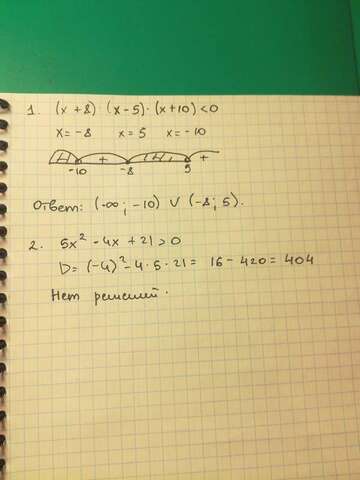 1. (x + 8) · (x - 5) · (x + 10) < 0
x = -8 x = 5 x = -10
- + - +
-10 -8 5
Ответ: (-∞; -10) ∪ (-8; 5).
2. 5x² - 4x + 21 > 0
D = (-4)² - 4 · 5 · 21 = 16 - 420 = 404
Нет решений.